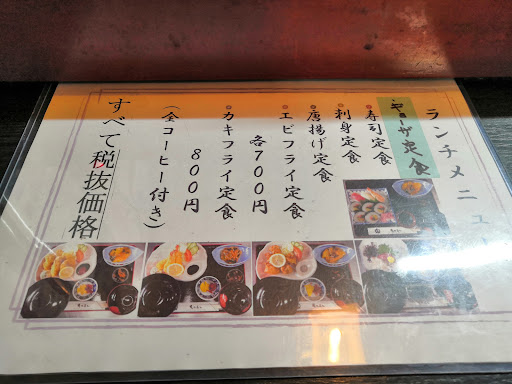 ランチメニュー
ギョーザ定食
寿司定食
刺身定食
唐揚げ定食
エビフライ定食
各700円
カキフライ定食
800円
(全コーヒー付き)
すべて税抜価格